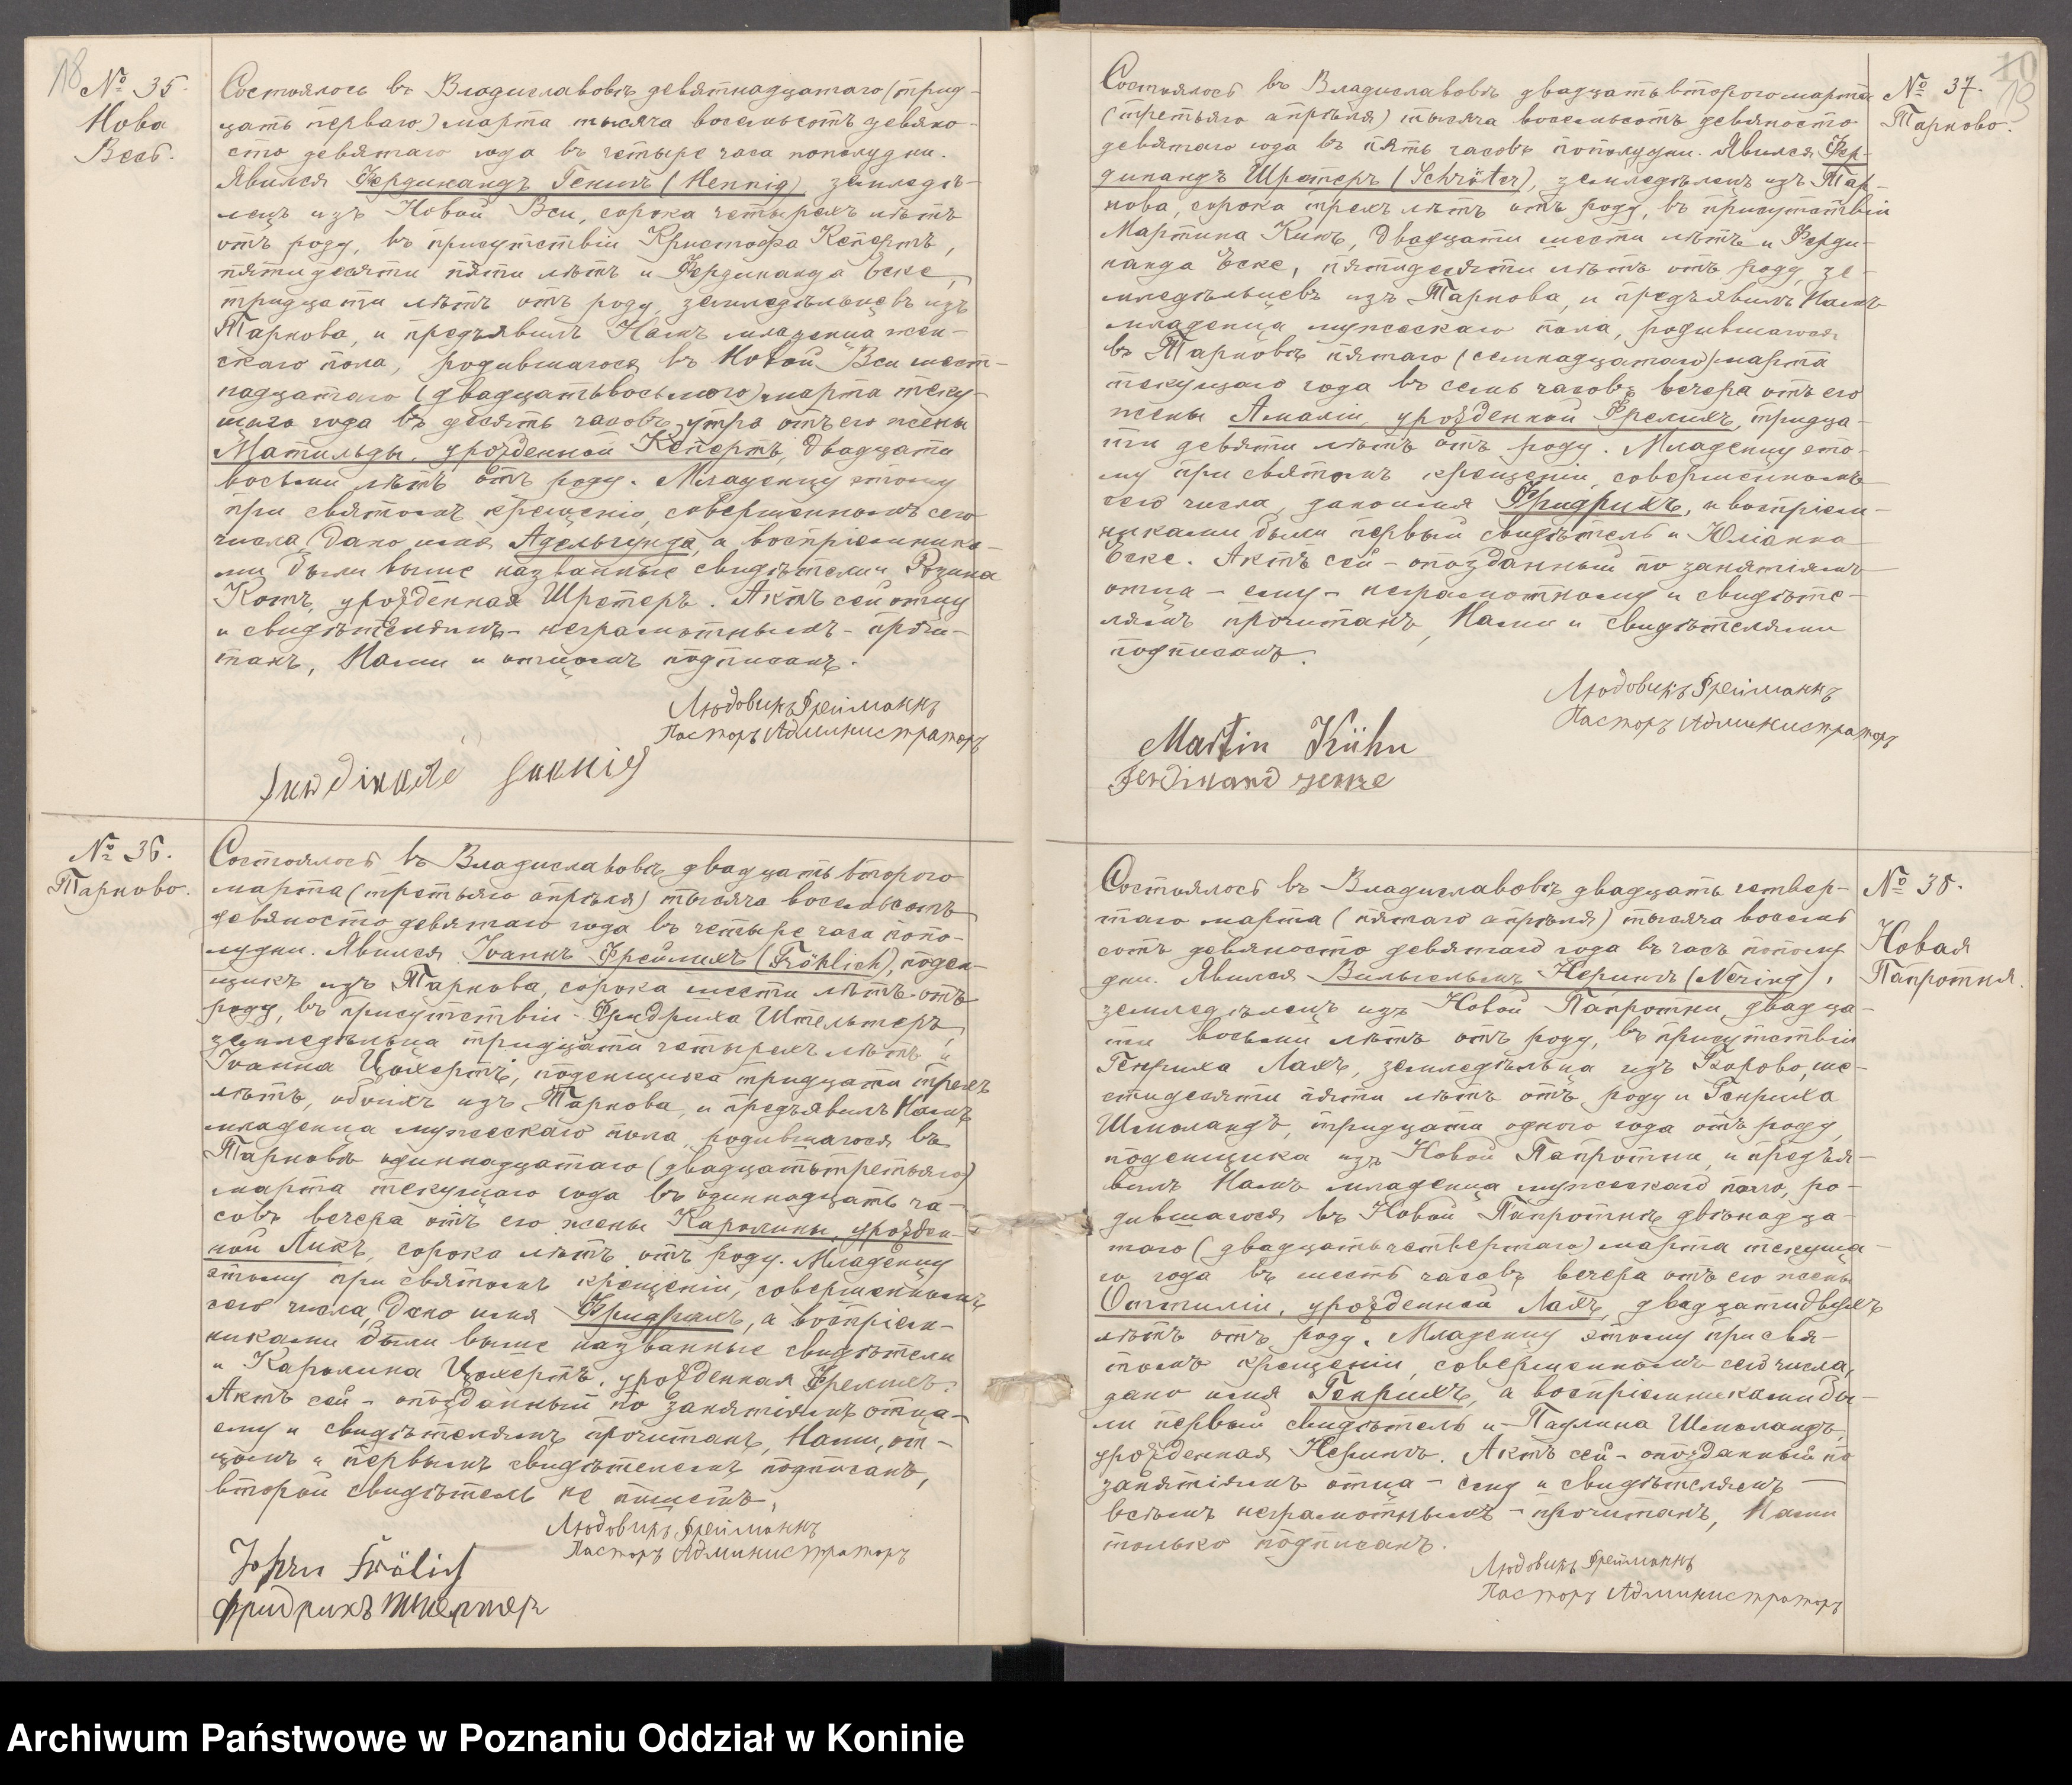 18
№ 35.
Нова
Весь.
Состоялось въ Владиславовѣ девятнадцатаго (трид-
цать перваго) марта тысяча восемьсотъ девяно-
сто девятаго года въ четыре часа пополудни.
Явился Фердинандъ Геншъ (Hennig) земледѣ-
лецъ изъ Новой Вси, сорока четырехъ лѣтъ
отъ роду, въ присутствіи Кристофа Кепертъ,
пятидесяти пяти лѣтъ и Фердинанда Еске,
тридцати лѣтъ отъ роду, земледѣльцевъ изъ
Тарнова, и предъявилъ Намъ младенца жен-
скаго пола, родившагося въ Новой Вси шест-
надцатаго (двадцатьвосьмого) марта теку-
щаго года въ десять часовъ утра отъ его жены
Матильды, урожденной Кепертъ, двадцати
восьми лѣтъ отъ роду. Младенцу этому
при святомъ крещеніи, совершенномъ сего
числа, дано имя Адельгунда, а воспріемника-
ми были выше названные свидѣтели и Рузина
Котъ, урожденная Шретеръ. Актъ сей отцу
и свидѣтелямъ - неграмотнымъ - прочи-
танъ, Нами и отцомъ подписанъ.
Людовикъ Грейманнъ
Пасторъ Администраторъ
№ 36.
Тарново.
Состоялось въ Владиславовѣ двадцать второго
марта (третьяго апрѣля) тысяча восемьсотъ
девяносто девятаго года въ четыре часа попо-
лудни. Явился Іоаннъ Фрейлихъ (Fröhlich), поден-
щикъ изъ Тарнова, сорока шести лѣтъ отъ
роду, въ присутствіи - Фридриха Штельтеръ,
земледѣльца тридцати четырехъ лѣтъ и
Іоанна Цохертъ, поденщика тридцати трехъ
лѣтъ, обоихъ изъ Тарнова, и предъявилъ Намъ
младенца мужескаго пола, родившагося въ
Тарновѣ одиннадцатаго (двадцатьтретьяго)
марта текущаго года въ одиннадцать ча-
совъ вечера отъ его жены Каролины, урожден-
ной Ликъ, сорока лѣтъ отъ роду. Младенцу
этому при святомъ крещеніи, совершенномъ
сего числа, дано имя Фридрихъ, а воспріем-
никами были выше названные свидѣтели
и Каролина Цохертъ, урожденная Фрелихъ.
Актъ сей - опозданный по занятіямъ отца -
ему и свидѣтелямъ прочитанъ, Нами, от-
цомъ и первымъ свидѣтелемъ подписанъ,
второй свидѣтель не пишетъ.
Людовикъ Грейманнъ
Пасторъ Администраторъ
John Frölich
Фридрихъ
10
19
№ 37.
Тарново.
Состоялось въ Владиславовѣ двадцатьвторого марта
(третьяго апрѣля) тысяча восемьсотъ девяносто
девятаго года въ пять часовъ пополудни. Явился Фер-
динандъ Шретеръ (Schröter), земледѣлецъ изъ Тар-
нова, сорока трехъ лѣтъ отъ роду, въ присутствіи
Мартина Кинъ, двадцати шести лѣтъ и Ферди-
нанда Еске, пятидесяти лѣтъ отъ роду, зе-
мледѣльцевъ изъ Тарнова, и предъявилъ Намъ
младенца мужескаго пола, родившагося
въ Тарновѣ пятаго (семнадцатаго) марта
текущаго года въ семь часовъ вечера отъ его
жены Амаліи, урожденной Фрелихъ, тридца-
ти девяти лѣтъ отъ роду. Младенцу это-
му при святомъ крещеніи, совершенномъ
сего числа, дано имя Фридрихъ, а воспріем-
никами были первый свидѣтель и Юліанна
Еске. Актъ сей - опозданный по занятіямъ
отца - ему - неграмотному и свидѣте-
лямъ прочитанъ, Нами и свидѣтелями
подписанъ.
Людовикъ Грейманнъ
Пасторъ Администраторъ
Martin Kühn
Ferdinand Jeske
№ 38.
Новая
Папротня.
Состоялось въ Владиславовѣ двадцать четвер-
таго марта (пятаго апрѣля) тысяча восемь
сотъ девяносто девятаго года въ часъ пополу
дни. Явился Вильгельмъ Нерингъ (Nering),
земледѣлецъ изъ Новой Папротни, двадца-
ти восьми лѣтъ отъ роду, въ присутствіи
Генриха Лахъ, земледѣльца изъ Борово, ше-
стидесяти пяти лѣтъ отъ роду и Генриха
Шмоландъ, тридцати одного года отъ роду,
поденщика изъ Новой Папротни, и предъя-
вилъ Намъ младенца мужескаго пола, ро-
дившагося въ Новой Папротнѣ двѣнадца-
таго (двадцатьчетвертаго) марта текуща-
го года въ шесть часовъ вечера отъ его жены
Оттиліи, урожденной Лахъ, двадцатидвухъ
лѣтъ отъ роду. Младенцу этому при свя-
томъ крещеніи, совершенномъ сего числа,
дано имя Генрихъ, а воспріемниками бы-
ли первый свидѣтель и Паулина Шмоландъ,
урожденная Нерингъ. Актъ сей - опозданный по
занятіямъ отца - ему и свидѣтелямъ -
всѣмъ неграмотнымъ - прочитанъ, Нами
только подписанъ.
Людовикъ Грейманнъ
Пасторъ Администраторъ
Archiwum Państwowe w Poznaniu Oddział w Koninie